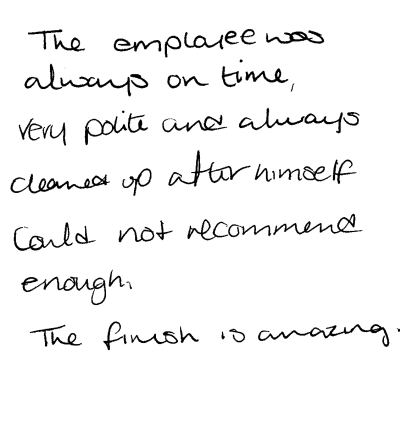 The employee was
always on time,
very polite and always
cleaned up after himself
Could not recommend
enough.
The finish is amazing.